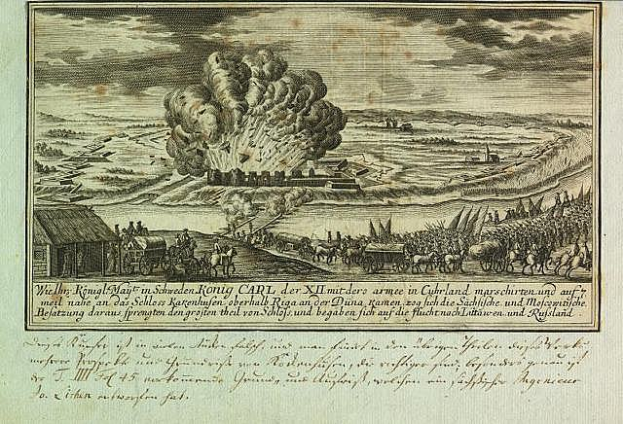 Wie Ihr: Königl: Mayt: in Schweden König CARL der XII mit dero armee in Cuhrland marschirten und auf 7
meil nahe an das Schloss Kakenhusen oberhalb Riga an der Düna kamen, zog sich die Sächsische und Moscowitische
Besatzung daraus sprengten den grösten theil von Schloss, und begaben sich auf die flucht nach Littawen und Russland
Dieses Kupfer ist in vielen falsch, und man findet in den übrigen Theilen dieses Werks
mehrere Prospekte und Grundrisse von Kockenhusen, die richtiger sind, besonders genau ist
der 45 vorkommende Grund und Aufriss, welchen ein sächsischer Ingenieur
entworfen hat.